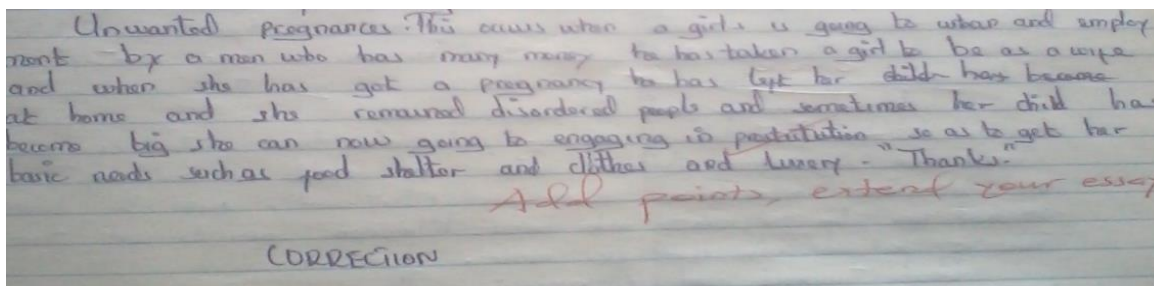 Unwanted pregnances. This occurs when a girls is going to urban and employ
ment by a man who has many money he has taken a girl to be as a wife
and when she has got a pregnancy he has left her child has became
at home and she remained disordered people and sometimes her child ha
become big she can now going to engaging in prostitution so as to get her
basic needs such as food shelter and clothes and luxery - "Thanks."
Add points, extend your essay
CORRECTION